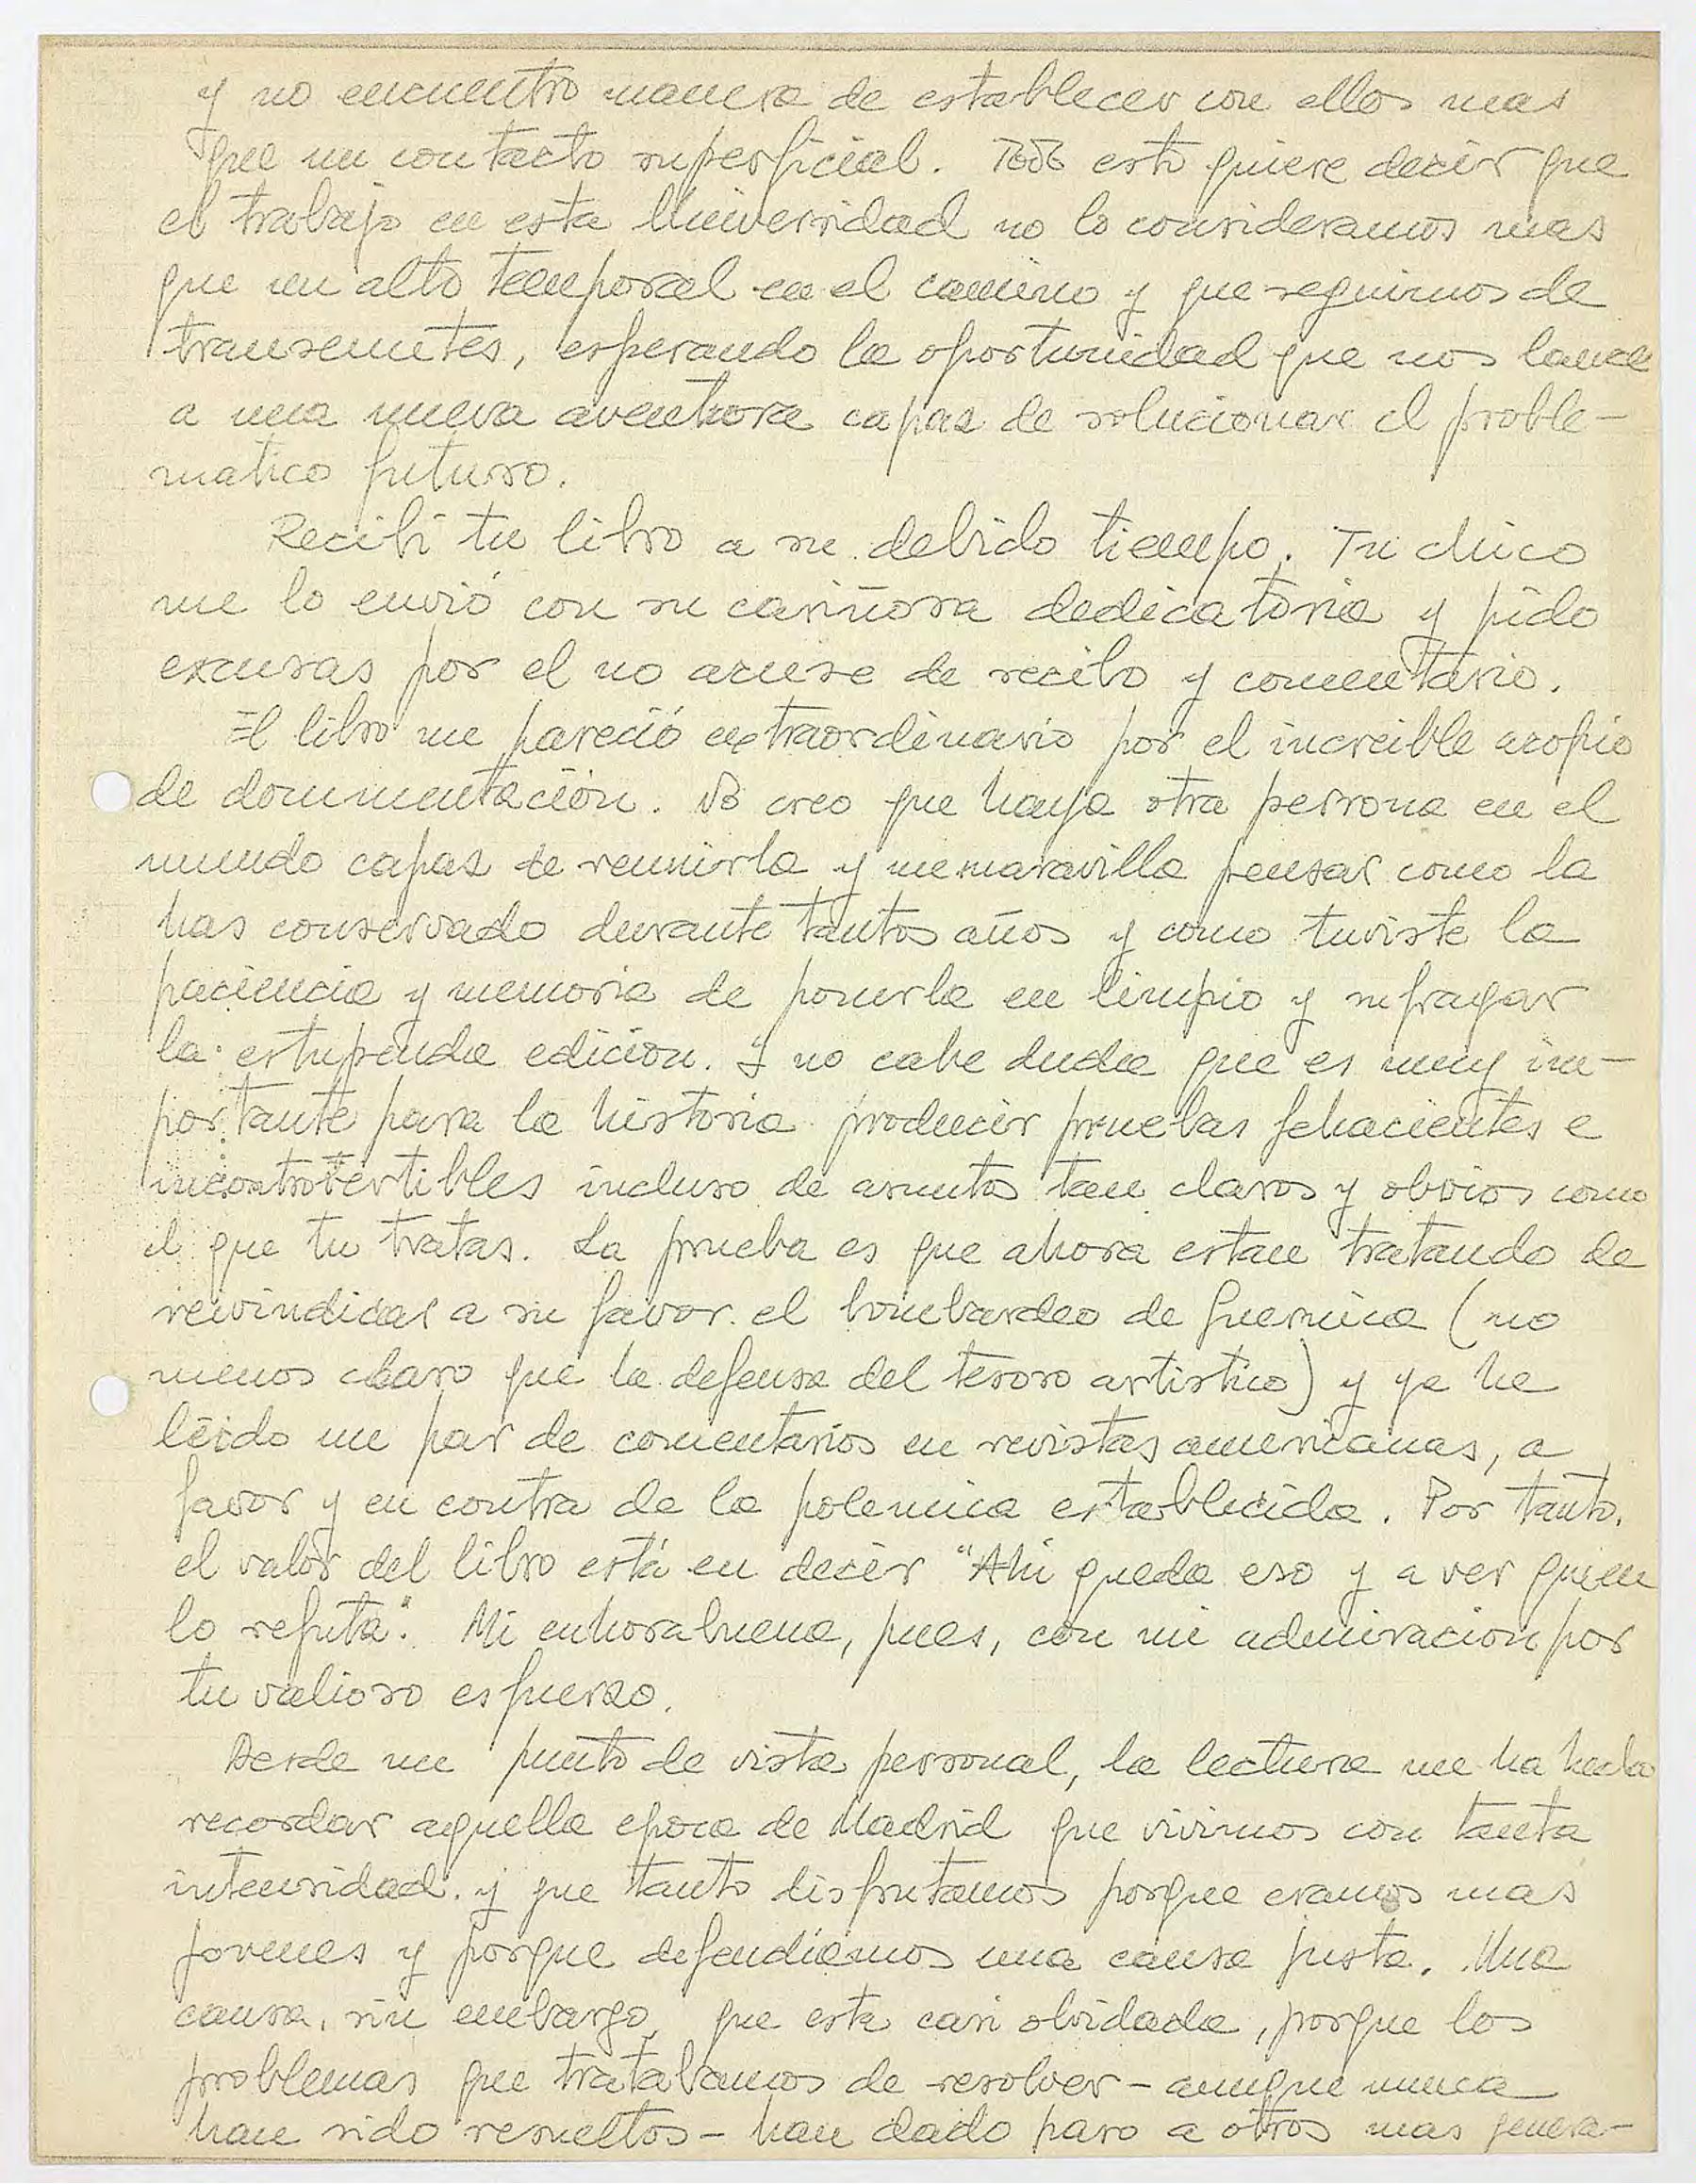 y no encuentro manera de establecer con ellos mas
que un contacto superficial. Todo esto quiere decir que
el trabajo en esta Universidad no lo consideramos mas
que un alto temporal en el camino y que seguimos de
transeuntes, esperando la oportunidad que nos lance
a una nueva aventura capaz de solucionar el proble-
matico futuro.
Recibí tu libro a su debido tiempo. Tu chico
me lo envió con su cariñosa dedicatoria y pido
excusas por el no acuse de recibo y comentario.
El libro me pareció extraordinario por el increible acopio
de documentación. No creo que haya otra persona en el
mundo capaz de reunirla y me maravilla pensar como la
has conservado durante tantos años y como tuviste la
paciencia y memoria de ponerla en limpio y sufragar
la estupenda edicion. Y no cabe duda que es muy im-
portante para la historia producir pruebas fehacientes e
incontrovertibles incluso de asuntos tan claros y obvios como
el que tu tratas. La prueba es que ahora estan tratando de
reivindicar a su favor el bombardeo de Guernica (no
menos claro que la defensa del tesoro artistico) y ya he
leido un par de comentarios en revistas americanas, a
favor y en contra de la polemica establecida. Por tanto,
el valor del libro está en decir "Ahi queda eso y a ver quien
lo refuta". Mi enhorabuena, pues, con mi admiracion por
tu valioso esfuerzo.
Desde un punto de vista personal, la lectura me ha hecho
recordar aquella epoca de Madrid que vivimos con tanta
intensidad y que tanto disfrutamos porque eramos mas
jovenes y porque defendiamos una causa justa. Una
causa, sin embargo, que esta casi olvidada, porque los
problemas que tratabamos de resolver - aunque nunca
han sido resueltos - han dado paso a otros mas genera-